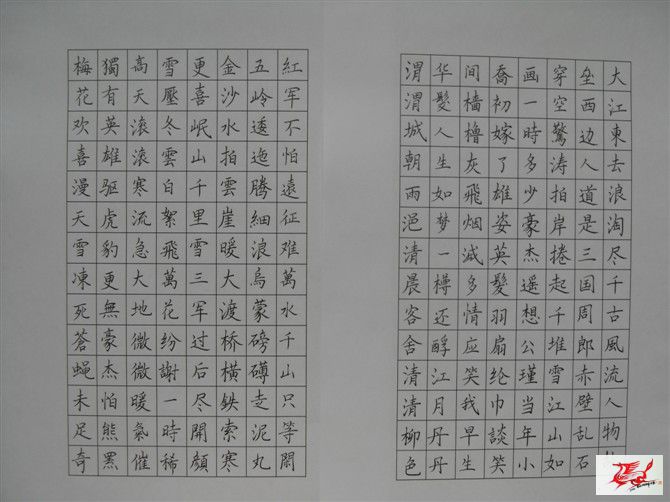 紅军不怕遠征难萬水千山只等閑
五岭逶迤騰細浪烏蒙磅礴走泥丸
金沙水拍雲崖暖大渡桥橫鉄索寒
更喜岷山千里雪三军过后尽開顏
雪壓冬雲白絮飛萬花纷謝一時稀
高天滚滚寒流急大地微微暖氣催
獨有英雄驱虎豹更無豪杰怕熊罴
梅花欢喜漫天雪凍死蒼蝇未足奇
大江東去浪淘尽千古風流人物
垒西边人道是三国周郎赤壁乱石
穿空驚涛拍岸捲起千堆雪江山如
画一時多少豪杰遥想公瑾当年小
喬初嫁了雄姿英髮羽扇纶巾談笑
间樯橹灰飛烟滅多情应笑我早生
华髮人生如梦一樽还酹江月丹丹
渭渭城朝雨浥清晨客舍清清柳色